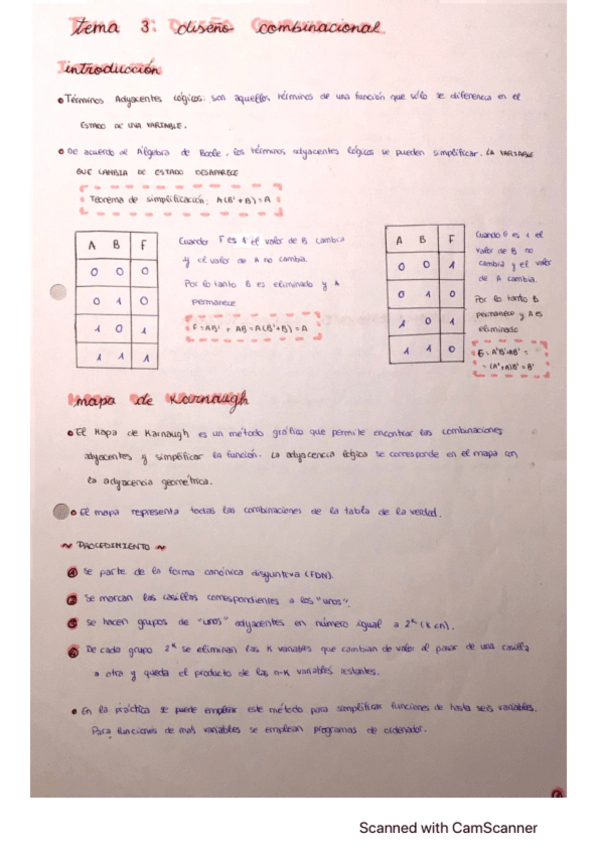 Tema 3: diseño combinacional.
introducción
Términos Adyacentes Lógicos: son aquellos términos de una función que sólo se diferencia en el
ESTADO DE UNA VARIABLE.
De acuerdo al Álgebra de Boole, los términos adyacentes lógicos se pueden simplificar. LA VARIABLE
QUE CAMBIA DE ESTADO DESAPARECE
Teorema de simplificación: A(B'+B)=A
A B F
0 0 0
0 1 0
1 0 1
1 1 1
Cuando F es 1 el valor de B cambia
y el valor de A no cambia.
Por lo tanto B es eliminado y A
permanece
F=AB' + AB = A(B'+B) = A
A B F
0 0 1
0 1 0
1 0 1
1 1 0
Cuando G es 1 el
valor de B no
cambia y el valor
de A cambia.
Por lo tanto B
permanece y A es
eliminado
G = A'B'+B' =
= (A'+A)B' = B'
mapa de Karnaugh
El Mapa de Karnaugh es un método gráfico que permite encontrar las combinaciones
adyacentes y simplificar la función. La adyacencia lógica se corresponde en el mapa con
la adyacencia geométrica.
El mapa representa todas las combinaciones de la tabla de la verdad.
~ PROCEDIMIENTO ~
1 Se parte de la forma canónica disyuntiva (FDN).
2 Se marcan las casillas correspondientes a los "unos".
3 Se hacen grupos de "unos" adyacentes en número igual a 2^k (k<n).
4 De cada grupo 2^k se eliminan las K variables que cambian de valor al pasar de una casilla
a otra y queda el producto de las n-k variables restantes.
En la práctica se puede emplear este método para simplificar funciones de hasta seis variables.
Para funciones de más variables se emplean programas de ordenador.
Scanned with CamScanner